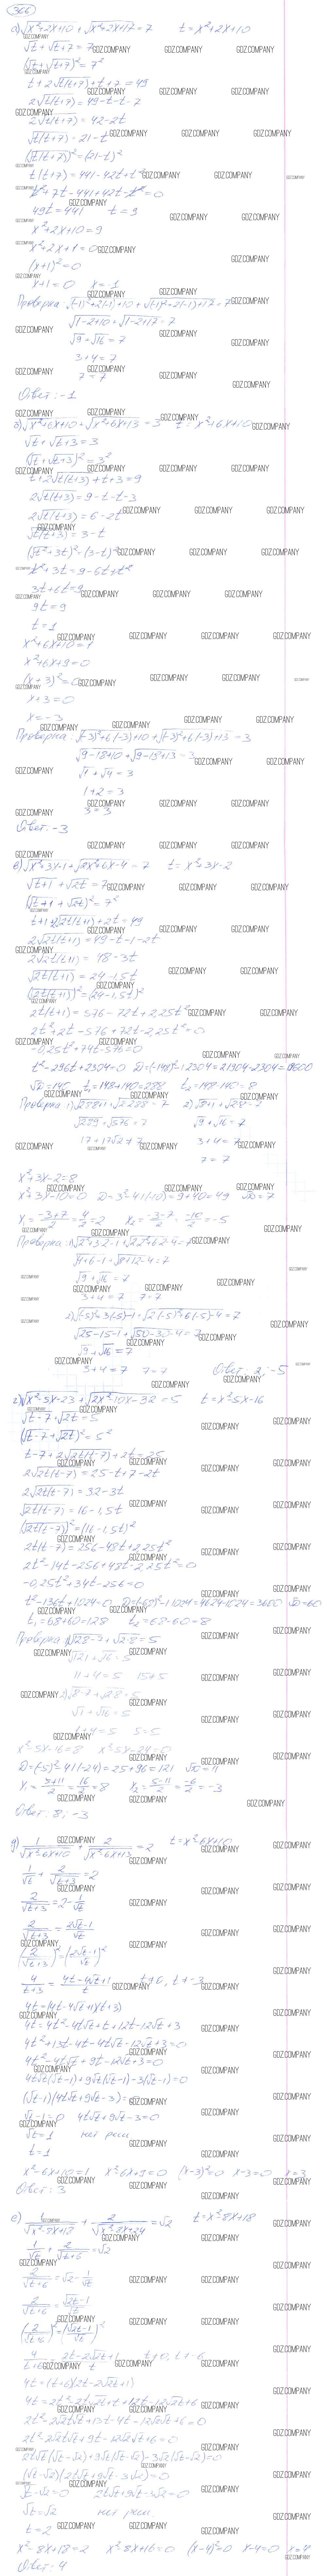 326
а) √x²+2x+10 + √x²+2x+17 = 7   t = x²+2x+10
√t + √t+7 = 7
(√t + √t+7)² = 7²
t + 2√t(t+7) + t + 7 = 49
2√t(t+7) = 49 - t - t - 7
2√t(t+7) = 42 - 2t
√t(t+7) = 21 - t
(√t(t+7))² = (21-t)²
t(t+7) = 441 - 42t + t²
t² + 7t - 441 + 42t - t² = 0
49t = 441   t = 9
x²+2x+10 = 9
x²+2x+1 = 0
(x+1)² = 0
x+1 = 0   x = -1
Проверка: √(-1)²+2(-1)+10 + √(-1)²+2(-1)+17 = 7
√1-2+10 + √1-2+17 = 7
√9 + √16 = 7
3+4 = 7
7 = 7
Ответ: -1
б) √x²+6x+10 + √x²+6x+13 = 3   t = x²+6x+10
√t + √t+3 = 3
(√t + √t+3)² = 3²
t + 2√t(t+3) + t + 3 = 9
2√t(t+3) = 9 - t - t - 3
2√t(t+3) = 6 - 2t
√t(t+3) = 3 - t
(√t²+3t)² = (3-t)²
t² + 3t = 9 - 6t + t²
3t + 6t = 9
9t = 9
t = 1
x²+6x+10 = 1
x²+6x+9 = 0
(x+3)² = 0
x+3 = 0
x = -3
Проверка: √(-3)²+6(-3)+10 + √(-3)²+6(-3)+13 = 3
√9-18+10 + √9-18+13 = 3
√1 + √4 = 3
1+2 = 3
3 = 3
Ответ: -3
в) √x²+3x-1 + √2x²+6x-4 = 7   t = x²+3x-2
√t+1 + √2t = 7
(√t+1 + √2t)² = 7²
t+1+2√2t(t+1) + 2t = 49
2√2t(t+1) = 49 - t - 1 - 2t
2√2t(t+1) = 48 - 3t
√2t(t+1) = 24 - 1,5t
(√2t(t+1))² = (24-1,5t)²
2t(t+1) = 576 - 72t + 2,25t²
2t² + 2t - 576 + 72t - 2,25t² = 0
-0,25t² + 74t - 576 = 0
t² - 296t + 2304 = 0   D = (-148)² - 2304 = 21904 - 2304 = 19600
√D = 140   t₁ = 148+140 = 288   t₂ = 148-140 = 8
Проверка: 1) √288+1 + √2·288 = 7   2) √8+1 + √2·8 = 7
√289 + √576 = 7   √9 + √16 = 7
3+4 = 7
7 = 7
x²+3x-2 = 8
x²+3x-10 = 0   D = 3²-4·1(-10) = 9+40 = 49   √D = 7
x₁ = -3+7/2 = 4/2 = 2   x₂ = -3-7/2 = -10/2 = -5
Проверка: 1) √2²+3·2-1 + √2·2²+6·2-4 = 7
√4+6-1 + √8+12-4 = 7
√9 + √16 = 7
3+4 = 7   7 = 7
2) √(-5)²+3(-5)-1 + √2(-5)²+6(-5)-4 = 7
√25-15-1 + √50-30-4 = 7
√9 + √16 = 7
3+4 = 7   7 = 7   Ответ: 2; -5
г) √x²-5x-23 + √2x²-10x-32 = 5   t = x²-5x-16
√t-7 + √2t = 5
(√t-7 + √2t)² = 5²
t-7+2√2t(t-7) + 2t = 25
2√2t(t-7) = 25 - t + 7 - 2t
2√2t(t-7) = 32 - 3t
√2t(t-7) = 16 - 1,5t
(√2t(t-7))² = (16-1,5t)²
2t(t-7) = 256 - 48t + 2,25t²
2t² - 14t - 256 + 48t - 2,25t² = 0
-0,25t² + 34t - 256 = 0
t² - 136t + 1024 = 0   D = (-68)² - 1024 = 4624 - 1024 = 3600   √D = 60
t₁ = 68+60 = 128   t₂ = 68-60 = 8
√121 + √16 = 5
11+4 = 5   15 ≠ 5
2) √8-7 + √2·8 = 5
√1 + √16 = 5
1+4 = 5   5 = 5
x²-5x-16 = 8   x²-5x-24 = 0
D = (-5)²-4·1(-24) = 25+96 = 121   √D = 11
x₁ = 5+11/2 = 16/2 = 8   x₂ = 5-11/2 = -6/2 = -3
Ответ: 8; -3
д) 1/√x²-6x+10 + 2/√x²-6x+13 = 2   t = x²-6x+10
1/√t + 2/√t+3 = 2
2/√t+3 = 2 - 1/√t
2/√t+3 = 2√t-1/√t
(2/√t+3)² = (2√t-1/√t)²
4/t+3 = 4t-4√t+1/t   t≠0, t≠-3
4t = (4t-4√t+1)(t+3)
4t = 4t²-4t√t+t+12t-12√t+3
4t²+13t-4t-4t√t-12√t+3 = 0
4t²-4t√t+9t-12√t+3 = 0
4t√t(√t-1)+9√t(√t-1)-3(√t-1) = 0
(√t-1)(4t√t+9√t-3) = 0
√t-1 = 0   4t√t+9√t-3 = 0
√t = 1   нет реш
t = 1
x²-6x+10 = 1   x²-6x+9 = 0   (x-3)² = 0   x-3 = 0   x = 3
Ответ: 3
е) 1/√x²-8x+18 + 2/√x²-8x+24 = √2   t = x²-8x+18
1/√t + 2/√t+6 = √2
2/√t+6 = √2 - 1/√t
2/√t+6 = √2t-1/√t
(2/√t+6)² = (√2t-1/√t)²
4/t+6 = 2t-2√2t+1/t   t≠0, t≠-6
4t = (t+6)(2t-2√2t+1)
4t = 2t²-2t√2t+t+12t-12√2t+6
2t²-2t√2t+13t-4t-12√2t+6 = 0
2t²-2t√2t+9t-12√2t+6 = 0
2t√t(√t-√2)+9√t(√t-√2)-3√2(√t-√2) = 0
(√t-√2)(2t√t+9√t-3√2) = 0
√t-√2 = 0   2t√t+9√t-3√2 = 0
√t = √2   нет реш
t = 2
x²-8x+18 = 2   x²-8x+16 = 0   (x-4)² = 0   x-4 = 0   x = 4
Ответ: 4